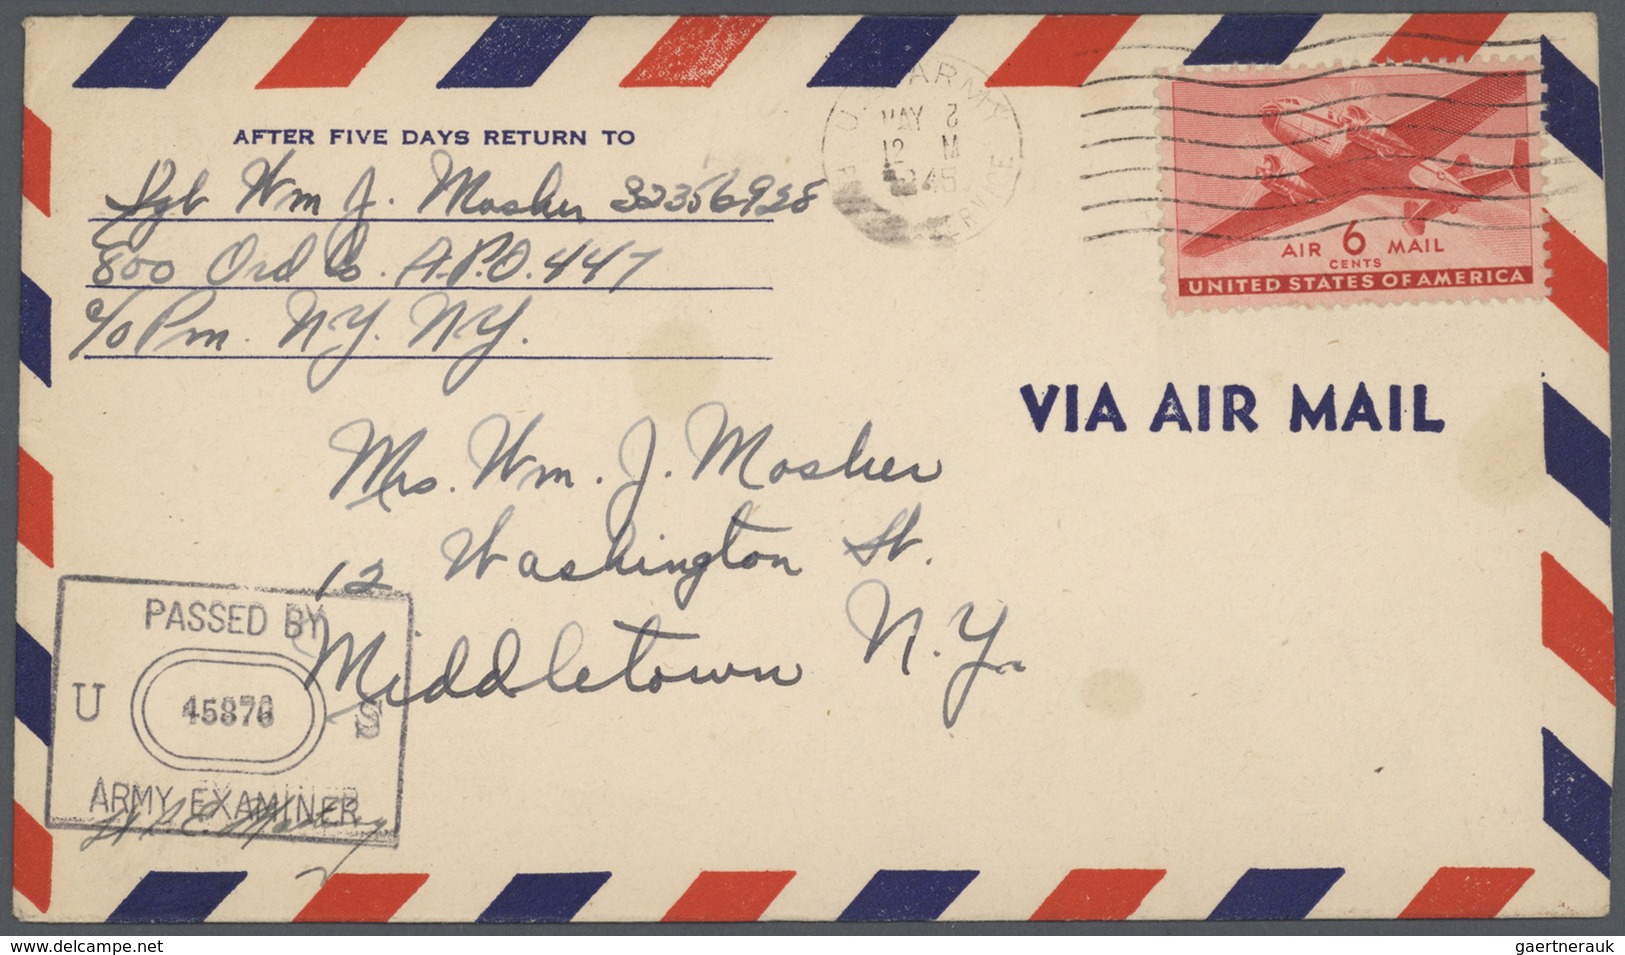 AFTER FIVE DAYS RETURN TO
Sgt Wm J. Mosher 32356928
800 Ord Co. A.P.O. 447
c/o Pm. N.Y. N.Y.
U.S. ARMY
MAY 2
12 M
1945
AIR 6 MAIL
CENTS
UNITED STATES OF AMERICA
VIA AIR MAIL
Mrs. Wm. J. Mosher
12 Washington St.
Middletown N.Y.
PASSED BY
U 45876 S
ARMY EXAMINER
www.delcampe.net
gaertnerauk